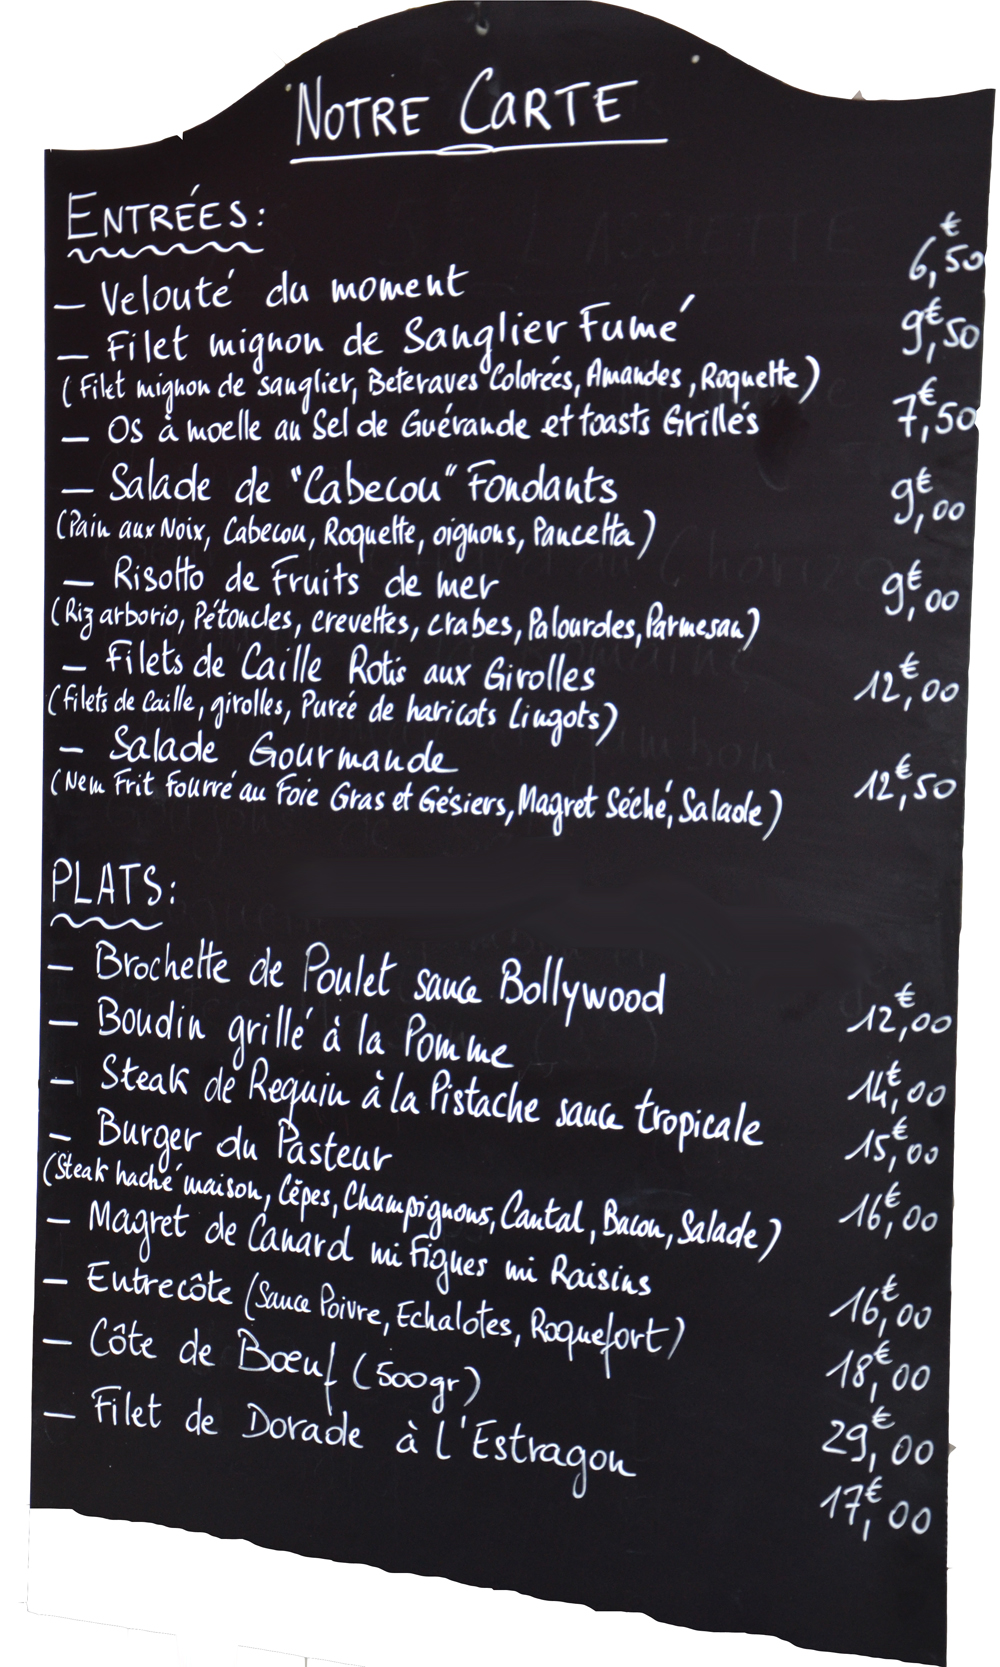 NOTRE CARTE
ENTRÉES:
— Velouté du moment 6,€50
— Filet mignon de Sanglier Fumé 9,€50
(Filet mignon de sanglier, Beteraves Colorées, Amandes, Roquette)
— Os à moelle au Sel de Guérande et toasts Grillés 7,€50
— Salade de "Cabecou" Fondants 9,€00
(Pain aux Noix, Cabecou, Roquette, oignons, Pancetta)
— Risotto de Fruits de mer 9,€00
(Riz arborio, Pétoncles, crevettes, crabes, Palourdes, Parmesan)
— Filets de Caille Rotis aux Girolles 12,€00
(Filets de Caille, girolles, Puréé de haricots Lingots)
— Salade Gourmande 12,€50
(Nem Frit Fourré au Foie Gras et Gésiers, Magret Séché, Salade)
PLATS:
— Brochette de Poulet sauce Bollywood 12,€00
— Boudin grillé à la Pomme 14,€00
— Steak de Requin à la Pistache sauce tropicale 15,€00
— Burger du Pasteur 16,€00
(Steak haché maison, Cêpes, Champignons, Cantal, Bacon, Salade)
— Magret de Canard mi Figues mi Raisins 16,€00
— Entrecôte (Sauce Poivre, Echalotes, Roquefort) 18,€00
— Côte de Bœuf (500gr) 29,€00
— Filet de Dorade à l'Estragon 17,€00